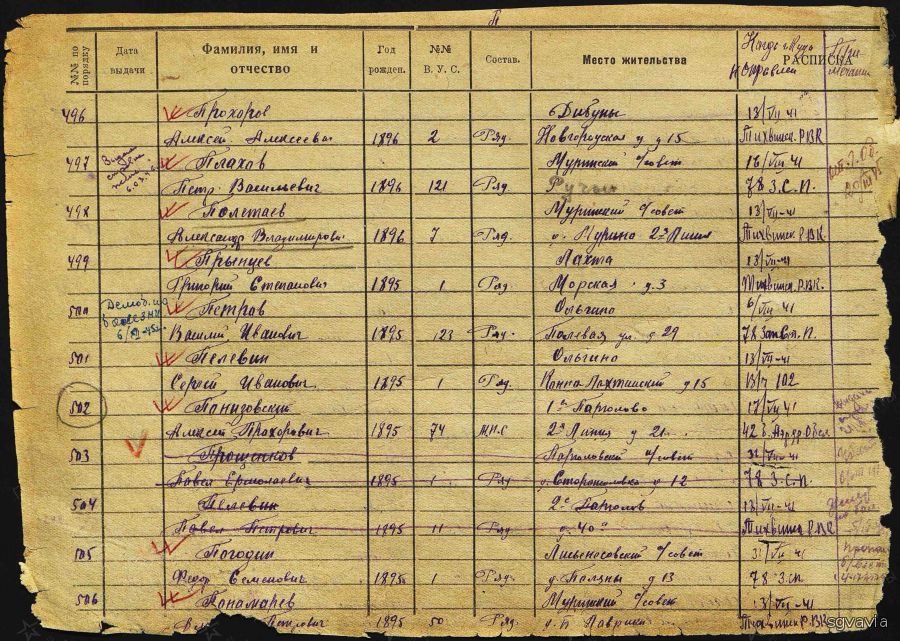 П
№№ по порядку Дата выдачи Фамилия, имя и отчество Год рожден. №№ В. У. С. Состав. Место жительства РАСПИСКА
496 Прохоров Дибуны 13/VII 41
Алексей Алексеевич 1896 2 Ряд. Новгородская у д 15 Тихвинск. РВК
497 Плахов Муринский с/совет 16/VII 41
Петр Васильевич 1896 121 Ряд. Ручьи 78 З.С.П.
498 Полетаев Муринский с/совет 13/VII-41
Александр Владимирович 1896 7 Ряд. д. Мурино 2я Линия Тихвинск. РВК
499 Прынцев Лахта 13/VII-41
Григорий Степанович 1895 1 Ряд Морская д. 3 Тихвинск. РВК.
500 Петров Ольгино 6/VII 41
Василий Иванович 1895 123 Ряд. Полевая ул. д 29 78 Зап. Ст. П.
Демоб.
501 Пелевин Ольгино 13/VII-41
Сергей Иванович 1895 1 Ряд. Конна Лахтинский д 15 102
502 Панизовский 1е Парголово 17/VII-41
Алексей Прохорович 1895 74 2я Линия д 21
503 Прощенков Парголовский с/совет 31/VII-41
Павел Ермолаевич 1895 1 Ряд д 12 78 З.С.П.
504 Пелевин 2е Паргол. 13/VII-41
Павел Петрович 1895 11 Ряд д. 40 Тихвинск. РВК
505 Погодин Лисьеносовский с/совет 31/VII 41
Федор Семенович 1895 1 Ряд. д. Поляны д 13 78 З.СП
506 Пономарев Муринский с/совет 13/VII-41
Петрович 1895 50 Ряд. д. Лаврики Тихвинск. РВК
sgvavia